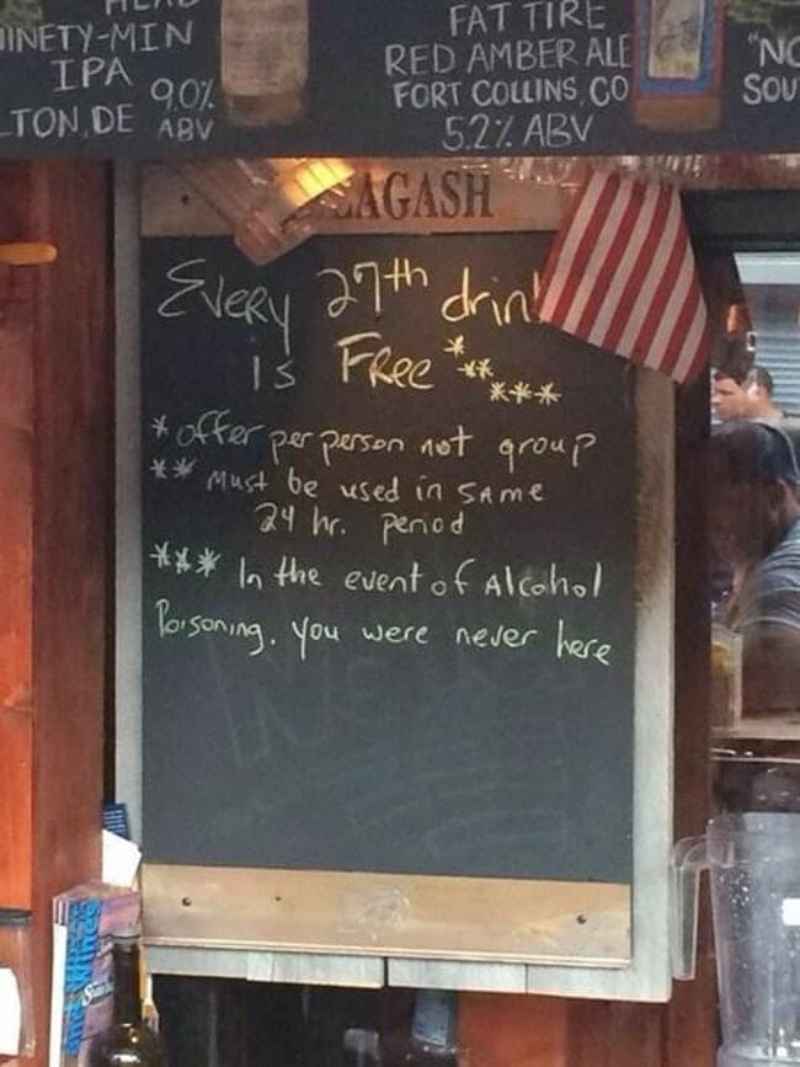 NINETY-MIN
IPA
9.0%
TON, DE ABV
FAT TIRE
RED AMBER ALE
FORT COLLINS, CO
5.2% ABV
"NO
SOU
LAGASH
Every 27th drin
is Free *
**
***
* offer per person not group
** Must be used in same
24 hr. period
*** In the event of Alcohol
Poisoning, you were never here